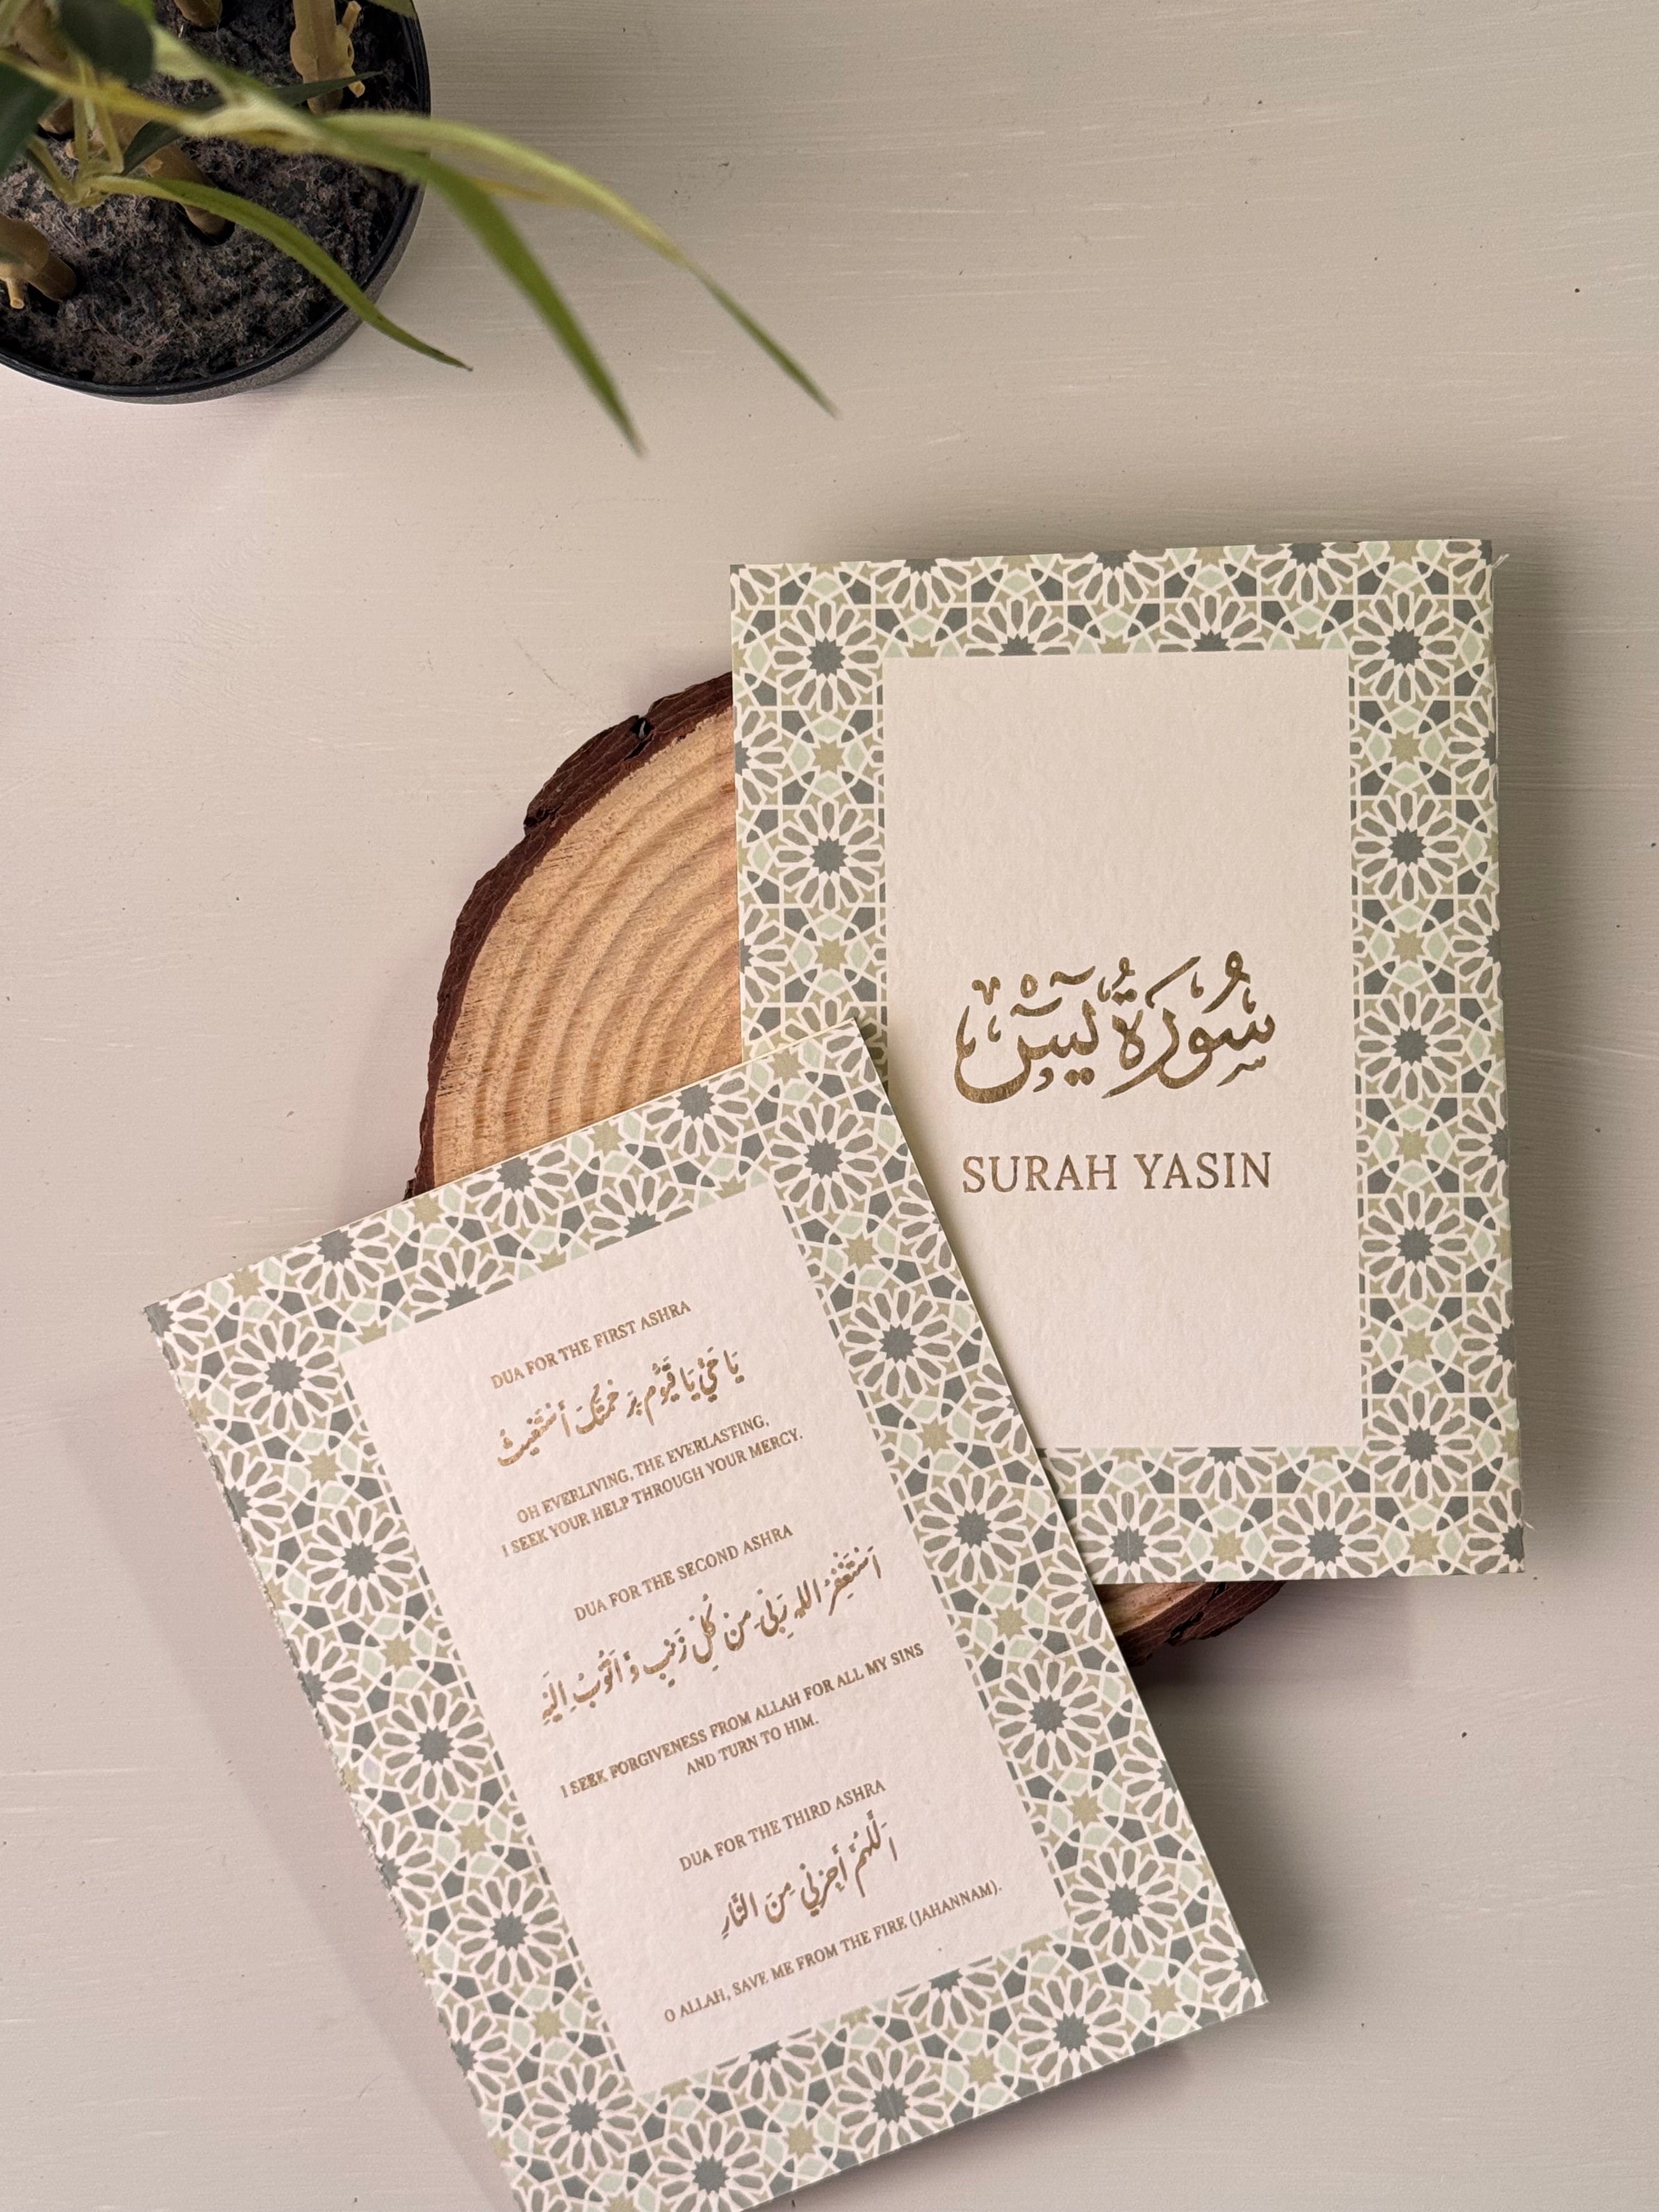 سُورَةُ يٰسٓ
SURAH YASIN
DUA FOR THE FIRST ASHRA
يَا حَيُّ يَا قَيُّومُ بِرَحْمَتِكَ أَسْتَغِيثُ
OH EVERLIVING, THE EVERLASTING,
I SEEK YOUR HELP THROUGH YOUR MERCY.
DUA FOR THE SECOND ASHRA
اَسْتَغْفِرُ اللهَ رَبِّي مِنْ كُلِّ زَنْبٍ وَّاَتُوبُ اِلَيْهِ
I SEEK FORGIVENESS FROM ALLAH FOR ALL MY SINS
AND TURN TO HIM.
DUA FOR THE THIRD ASHRA
اَللَّهُمَّ أَجِرْنِي مِنَ النَّارِ
O ALLAH, SAVE ME FROM THE FIRE (JAHANNAM).